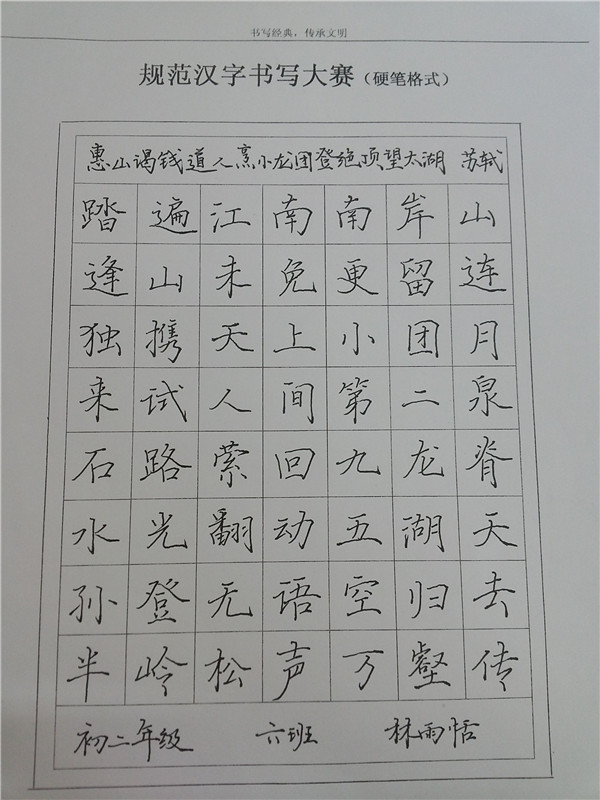 书写经典，传承文明
规范汉字书写大赛（硬笔格式）
惠山谒钱道人烹小龙团登绝顶望太湖 苏轼
踏遍江南南岸山
逢山未免更留连
独携天上小团月
来试人间第二泉
石路萦回九龙脊
水光翻动五湖天
孙登无语空归去
半岭松声万壑传
初二年级 六班 林雨恬